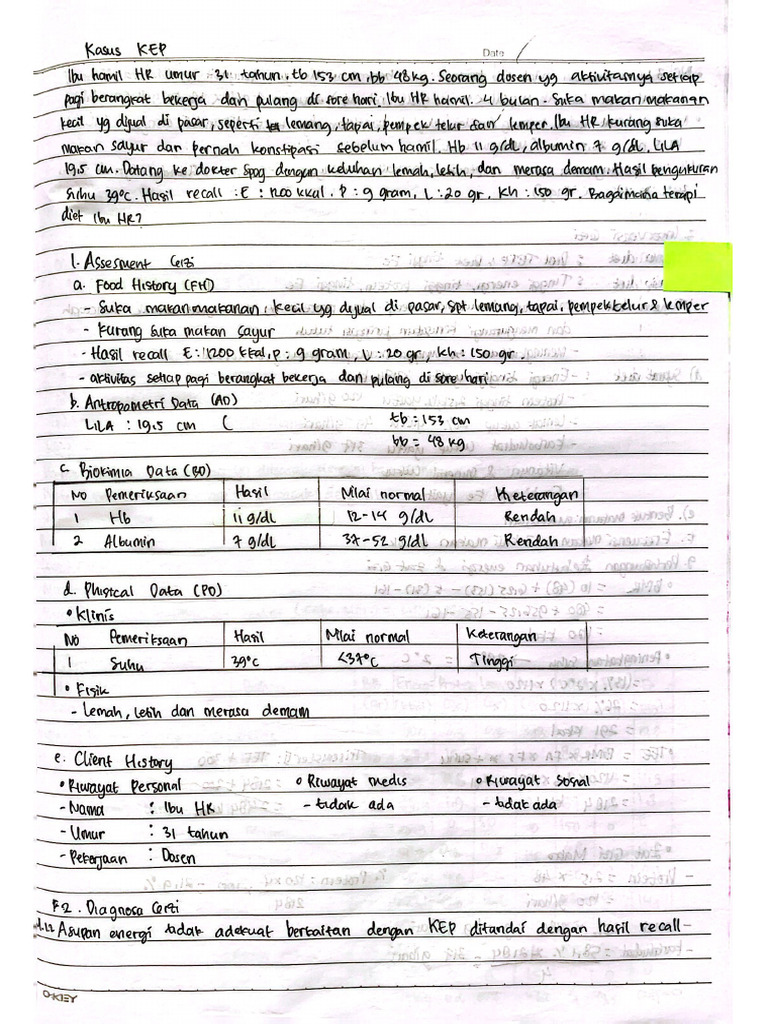 Kasus KEP
Date
Ibu hamil HR umur 31 tahun, tb 153 cm, bb 48 kg. Seorang dosen yg aktivitasnya setiap
pagi berangkat bekerja dan pulang di sore hari. Ibu HR hamil 4 bulan. Suka makan makanan
kecil yg dijual di pasar, seperti lemang, tapai, pempek telur dan lemper. Ibu HR kurang suka
makan sayur dan pernah konstipasi sebelum hamil. Hb 11 g/dl, albumin 7 g/dl. LILA
19.5 cm. Datang ke dokter Spog dengan keluhan lemah, letih, dan merasa demam. Hasil pengukuran
suhu 39°C. Hasil recall : E : 1200 kkal. P : 9 gram, L : 20 gr. Kh : 150 gr. Bagaimana terapi
diet Ibu HR?
1. Assesment Gizi
a. Food History (FH)
- Suka makan makanan kecil yg dijual di pasar, spt lemang, tapai, pempek telur & lemper
- Kurang suka makan sayur
- Hasil recall E : 1200 kkal, P : 9 gram, L : 20 gr. Kh : 150 gr.
- aktivitas setiap pagi berangkat bekerja dan pulang di sore hari
b. Antropometri Data (AD)
LILA : 19.5 cm ( tb = 153 cm
bb = 48 kg
c. Biokimia Data (BD)
No Pemeriksaan Hasil Nilai normal Keterangan
1 Hb 11 g/dl 12-14 g/dl Rendah
2 Albumin 7 g/dl 37-52 g/dl Rendah
d. Phisical Data (PD)
• Klinis
No Pemeriksaan Hasil Nilai normal Keterangan
1 Suhu 39°C <37°C Tinggi
• Fisik
- Lemah, letih dan merasa demam
e. Client History
• Riwayat Personal • Riwayat medis • Riwayat Sosial
- Nama : Ibu HR - tidak ada - tidak ada
- Umur : 31 tahun
- Pekerjaan : Dosen
2. Diagnosa Gizi
Asupan energi tidak adekuat berkaitan dengan KEP ditandai dengan hasil recall-
O-KEY